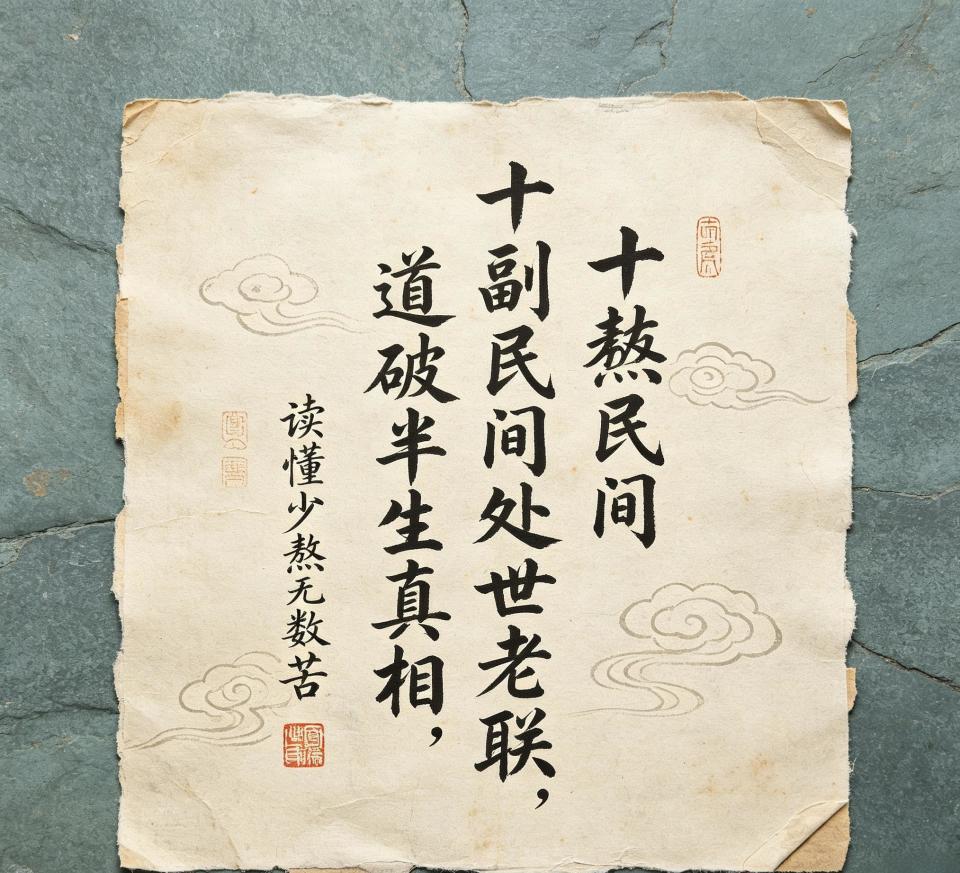 十熬民间
十副民间处世老联，
道破半生真相，
读懂少熬无数苦